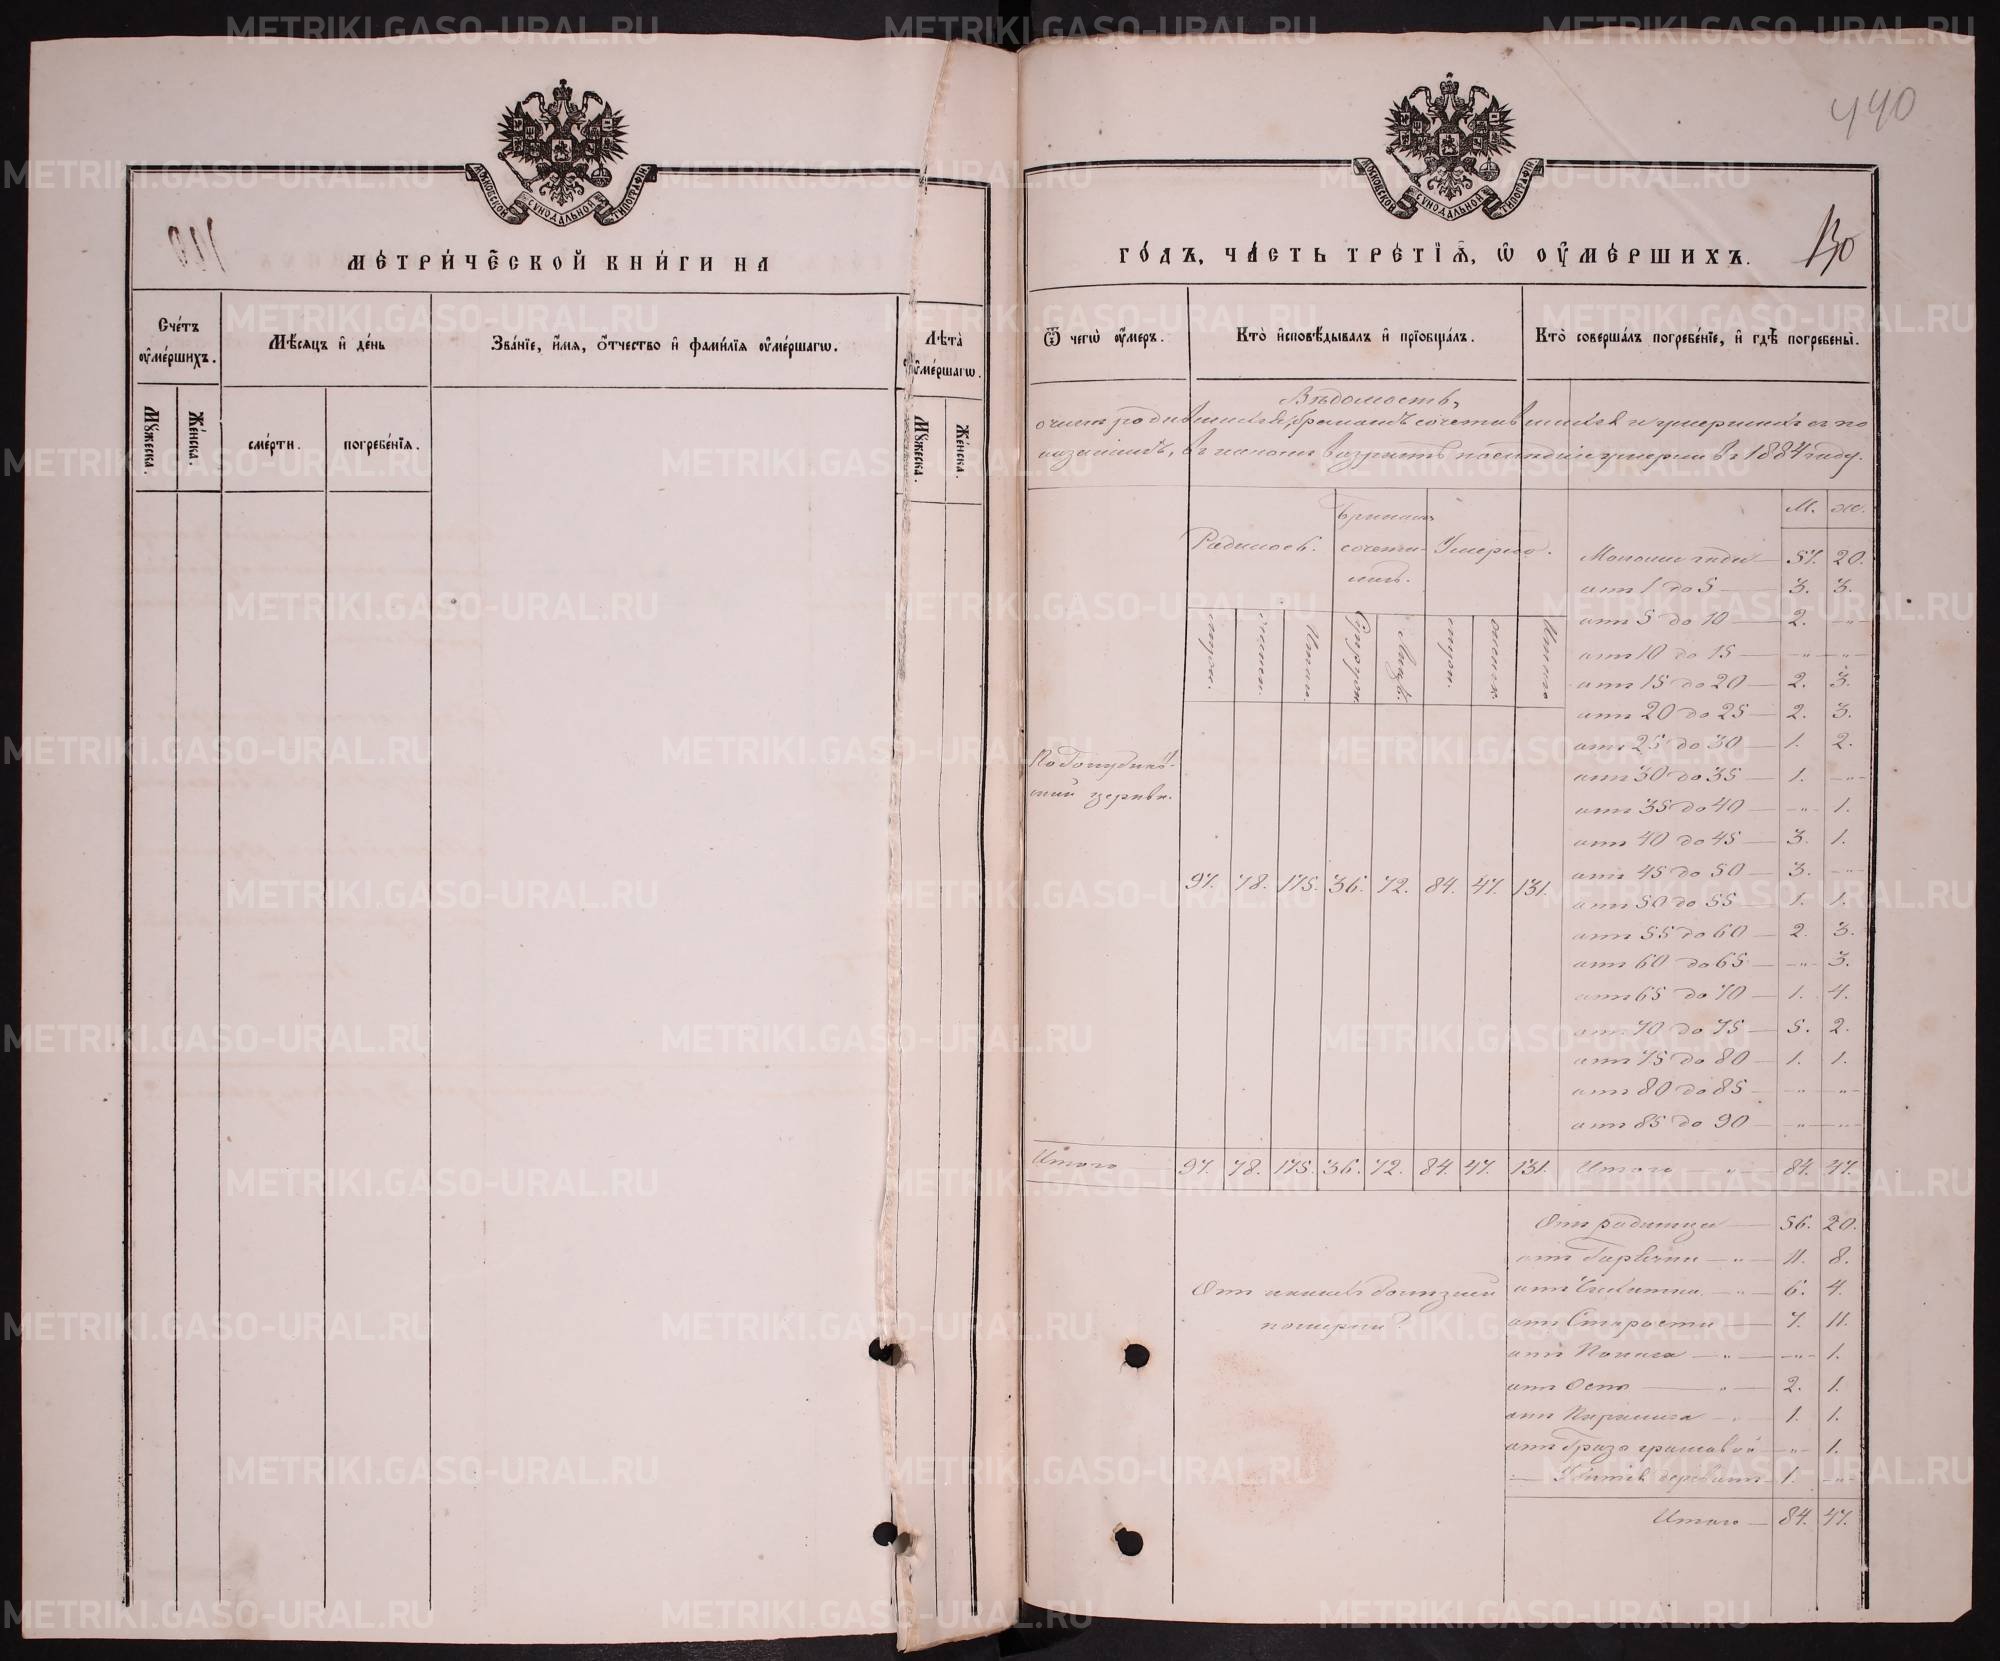 440
МОСКОВСКОЙ СУНОДАЛЬНОЙ ТИПОГРАФІИ
МОСКОВСКОЙ СУНОДАЛЬНОЙ ТИПОГРАФІИ
МЕТРИЧЕСКОЙ КНИГИ НА
ГОДЪ, ЧАСТЬ ТРЕТІЯ, Ѡ ОУМЕРШИХЪ.
130
Счетъ оумершихъ.
Мѣсяцъ и день
Званіе, имя, отчество и фамиліѧ оумершагѡ.
Лѣта оумершагѡ.
Мужеска.
Женска.
смерти.
погребеніѧ.
Мужеска.
Женска.
Ѿ чегѡ оумеръ.
Кто исповѣдывалъ и пріобщалъ.
Кто совершалъ погребеніе, и гдѣ погребены.
Вѣдомость,
о числѣ родившихся, бракомъ сочетавшихся и умершихъ съ по
казаніемъ, въ какомъ возрастѣ послѣдніе умерли въ 1884 году.
Родилось.
Бракомъ
сочета-
лись.
Умерло.
М. Ж.
муж.
женск.
Итого.
Супруж.
Лицъ.
муж.
женск.
Итого
Моложе года — 57. 20.
отъ 1 до 5 — 3. 3.
отъ 5 до 10 — 2. -"-
отъ 10 до 15 — -"- -"-
отъ 15 до 20 — 2. 3.
отъ 20 до 25 — 2. 3.
отъ 25 до 30 — 1. 2.
отъ 30 до 35 — 1. -"-
отъ 35 до 40 — -"- 1.
отъ 40 до 45 — 3. 1.
отъ 45 до 50 — 3. -"-
отъ 50 до 55 — 1. 1.
отъ 55 до 60 — 2. 3.
отъ 60 до 65 — -"- 3.
отъ 65 до 70 — 1. 4.
отъ 70 до 75 — 5. 2.
отъ 75 до 80 — 1. 1.
отъ 80 до 85 — -"- -"-
отъ 85 до 90 — -"- -"-
церкви.
97. 78. 175. 36. 72. 84. 47. 131.
Итого 97. 78. 175. 36. 72. 84. 47. 131. Итого — 84. 47.
Отъ какихъ болѣзней
померли?
Отъ родимца — 56. 20.
отъ Горячки — " — 11. 8.
отъ Чахотки — " — 6. 4.
отъ Старости — 7. 11.
отъ Поноса — " — -"- 1.
отъ Оспы — " — 2. 1.
отъ — 1. 1.
отъ — " — 1.
— Убитъ деревомъ — 1. -"-
Итого — 84. 47.
METRIKI.GASO-URAL.RU